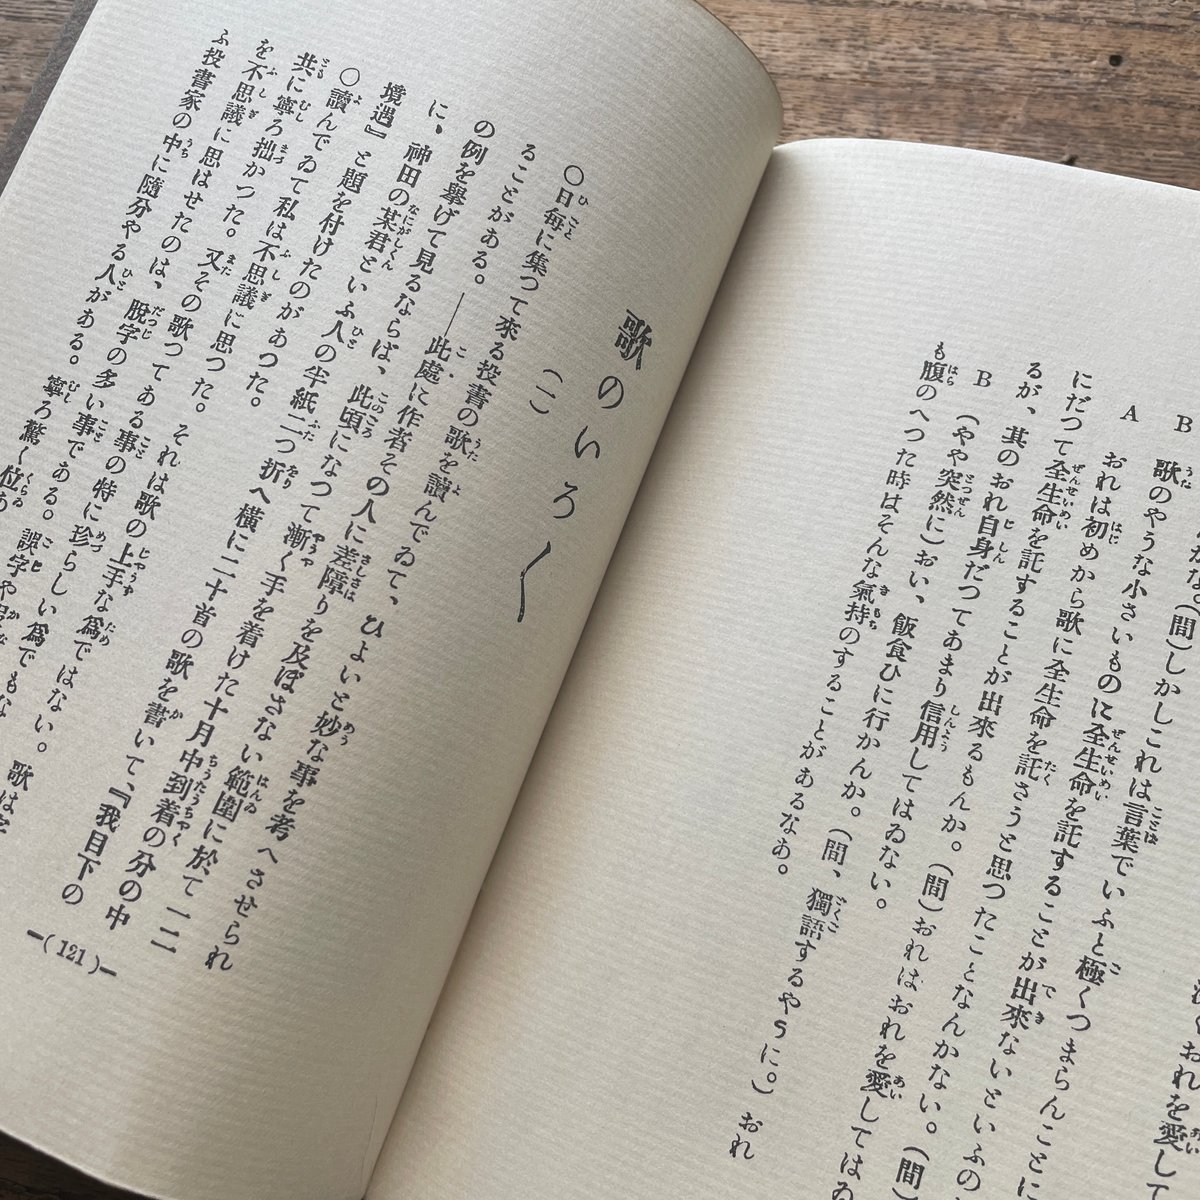 かな。(間)しかしこれは言葉でいふと極くつまらんことに
B　歌のやうな小さいものに全生命を託することが出來ないといふの
A　おれは初めから歌に全生命を託さうと思つたことなんかない。(間)
にだつて全生命を託することが出來るもんか。(間)おれはおれを愛してはゐ
るが、其のおれ自身だつてあまり信用してはゐない。
B　(やや突然に)おい、飯食ひに行かんか。(間、獨語するやうに。)おれ
も腹のへつた時はそんな氣持のすることがあるなあ。
歌のいろ〱
(一)
○日毎に集つて來る投書の歌を讀んでゐて、ひよいと妙な事を考へさせられ
ることがある。――此處に作者その人に差障りを及ぼさない範圍に於て一二
の例を擧げて見るならば、此頃になつて漸く手を着けた十月中到着の分の中
に、神田の某君といふ人の半紙二つ折へ橫に二十首の歌を書いて、『我目下の
境遇』と題を付けたのがあつた。
○讀んでゐて私は不思議に思つた。それは歌の上手な爲ではない。歌は字
共に寧ろ拙かつた。又その歌つてある事の特に珍らしい爲でもな
を不思議に思はせたのは、脫字の多い事である。誤字や
ふ投書家の中に隨分やる人がある。寧ろ驚く位あ
—( 121 )—